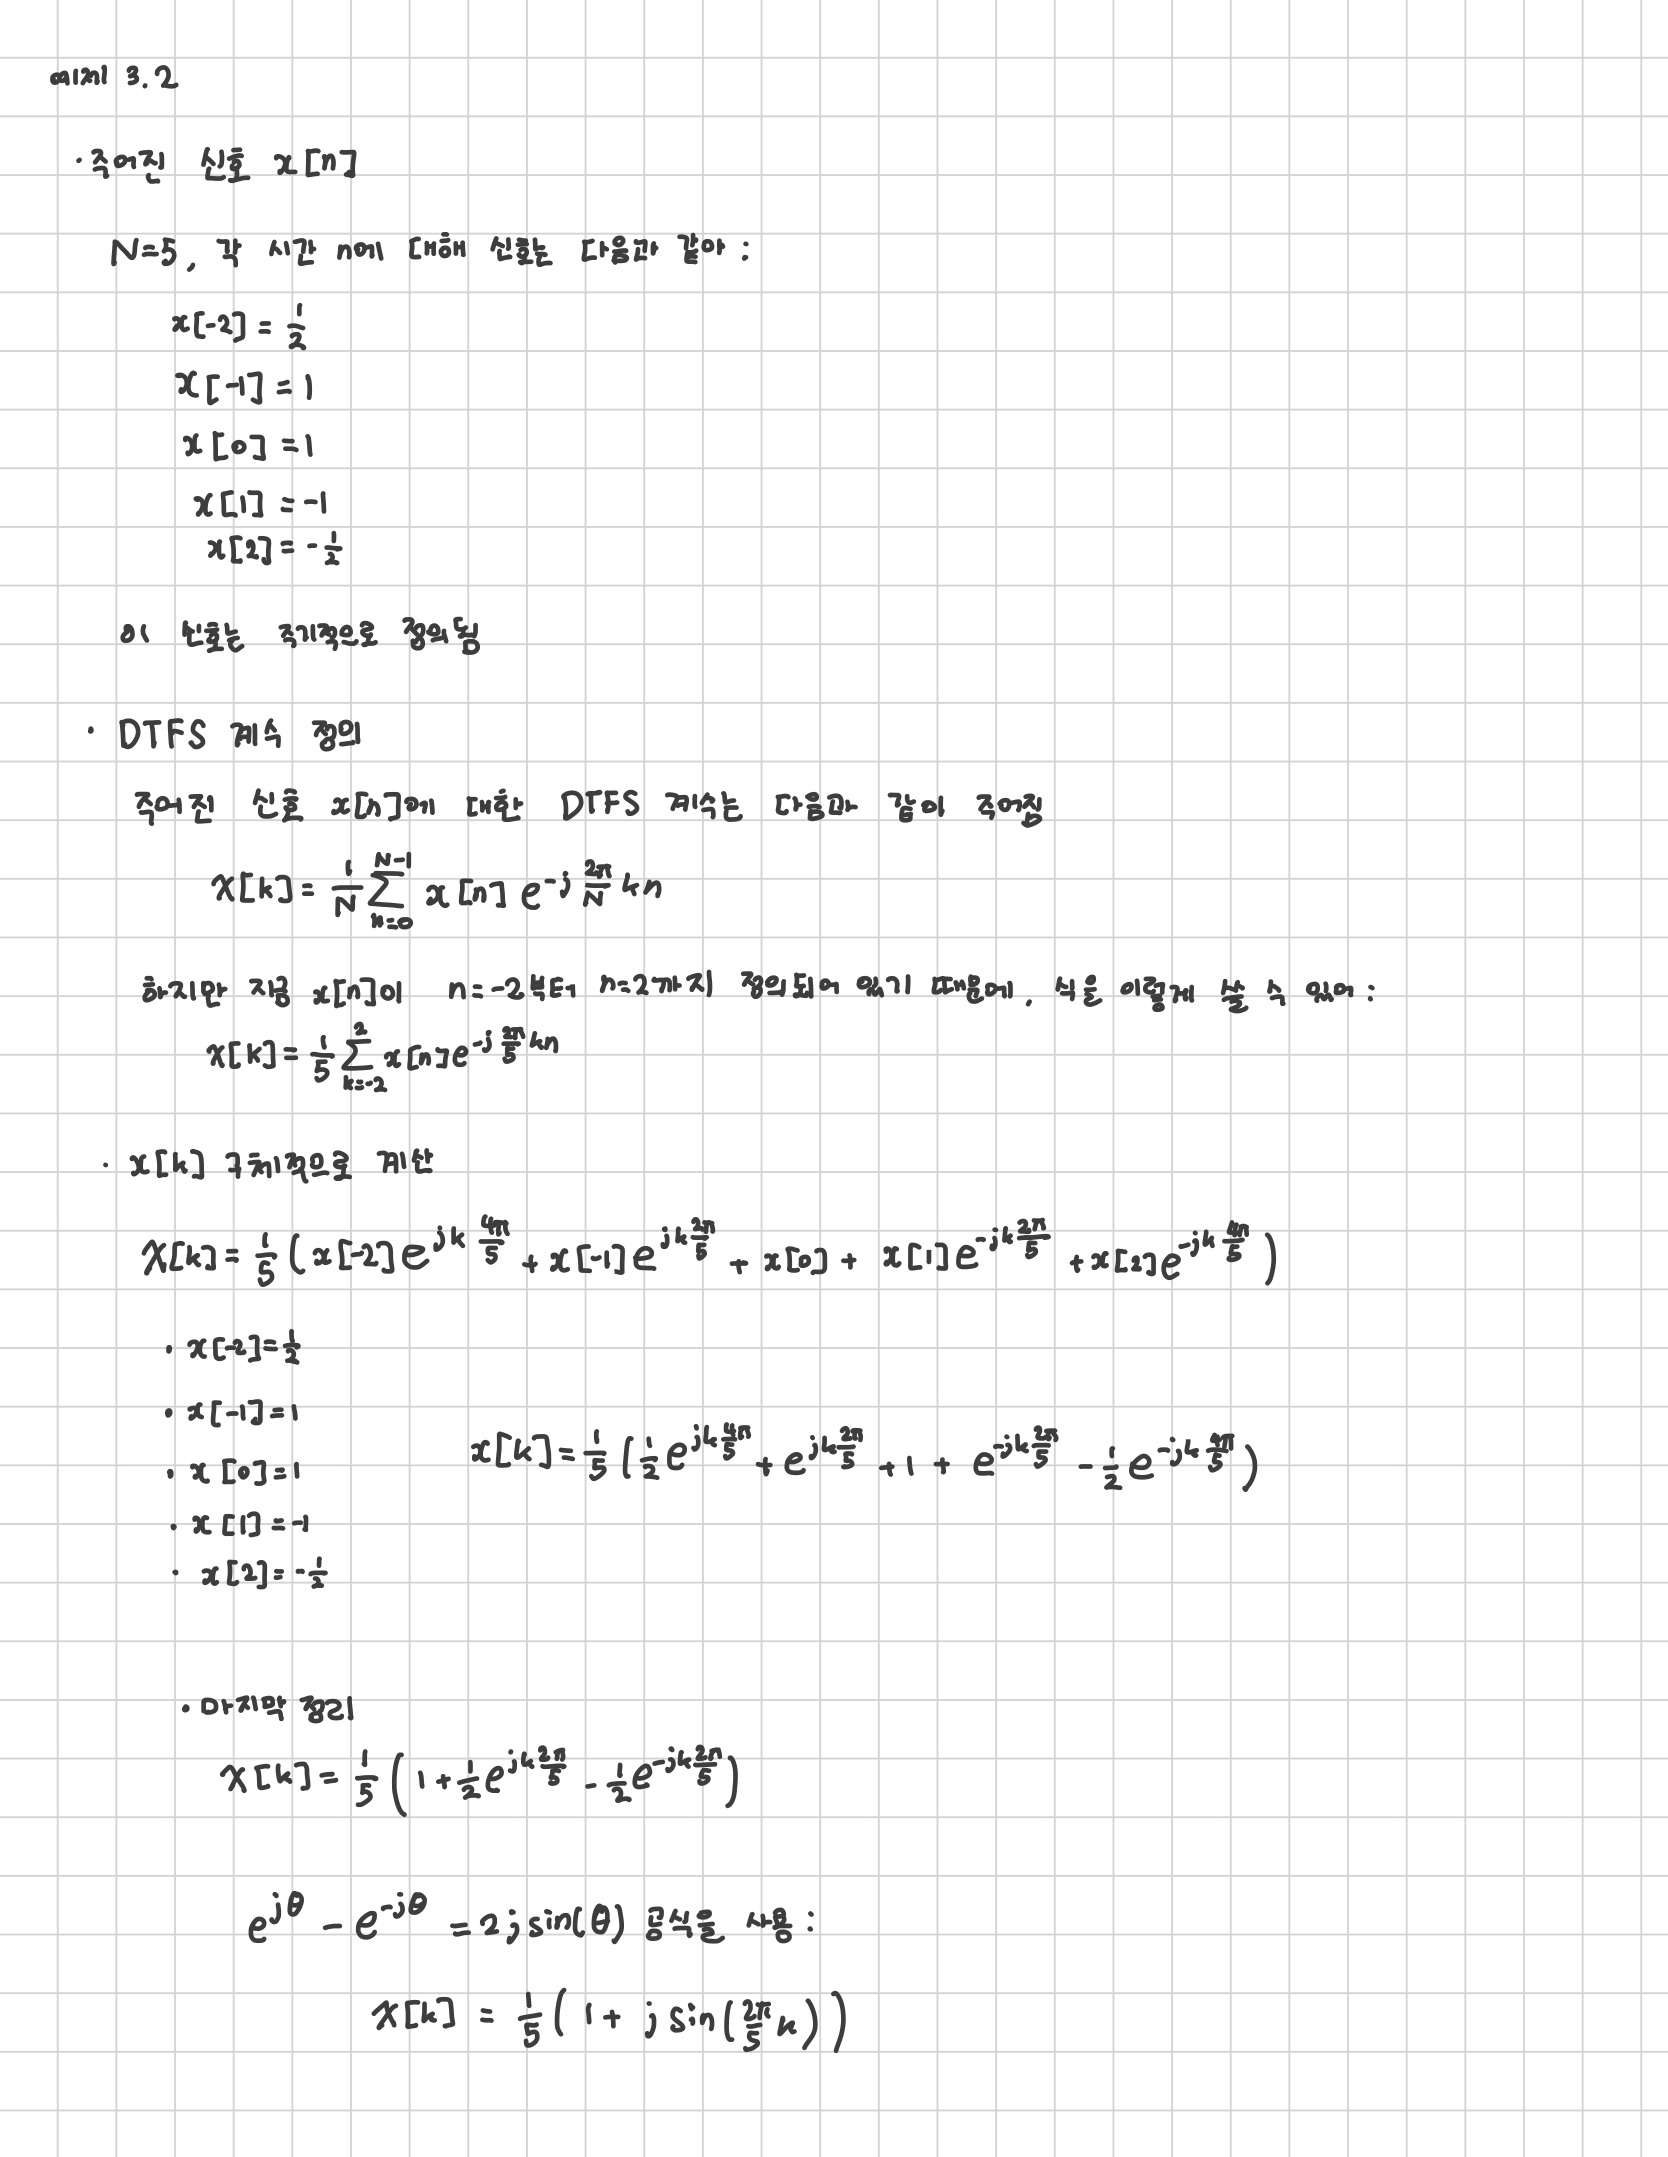 예제 3.2
· 주어진 신호 x[n]
N=5, 각 시간 n에 대해 신호는 다음과 같아 :
x[-2] = 1/2
x[-1] = 1
x[0] = 1
x[1] = -1
x[2] = -1/2
이 신호는 주기적으로 정의됨
· DTFS 계수 정의
주어진 신호 x[n]에 대한 DTFS 계수는 다음과 같이 주어짐
X[k] = 1/N ∑_{n=0}^{N-1} x[n] e^{-j 2π/N kn}
하지만 지금 x[n]이 n=-2부터 n=2까지 정의되어 있기 때문에, 식을 이렇게 쓸 수 있어 :
X[k] = 1/5 ∑_{k=-2}^{2} x[n] e^{-j 2π/5 kn}
· x[k] 구체적으로 계산
X[k] = 1/5 ( x[-2] e^{jk 4π/5} + x[-1] e^{jk 2π/5} + x[0] + x[1] e^{-jk 2π/5} + x[2] e^{-jk 4π/5} )
· x[-2] = 1/2
· x[-1] = 1
· x[0] = 1
· x[1] = -1
· x[2] = -1/2
x[k] = 1/5 ( 1/2 e^{jk 4π/5} + e^{jk 2π/5} + 1 + e^{-jk 2π/5} - 1/2 e^{-jk 4π/5} )
· 마지막 정리
X[k] = 1/5 ( 1 + 1/2 e^{jk 2π/5} - 1/2 e^{-jk 2π/5} )
e^{jθ} - e^{-jθ} = 2j sin(θ) 공식을 사용 :
X[k] = 1/5 ( 1 + j sin( 2π/5 k ) )